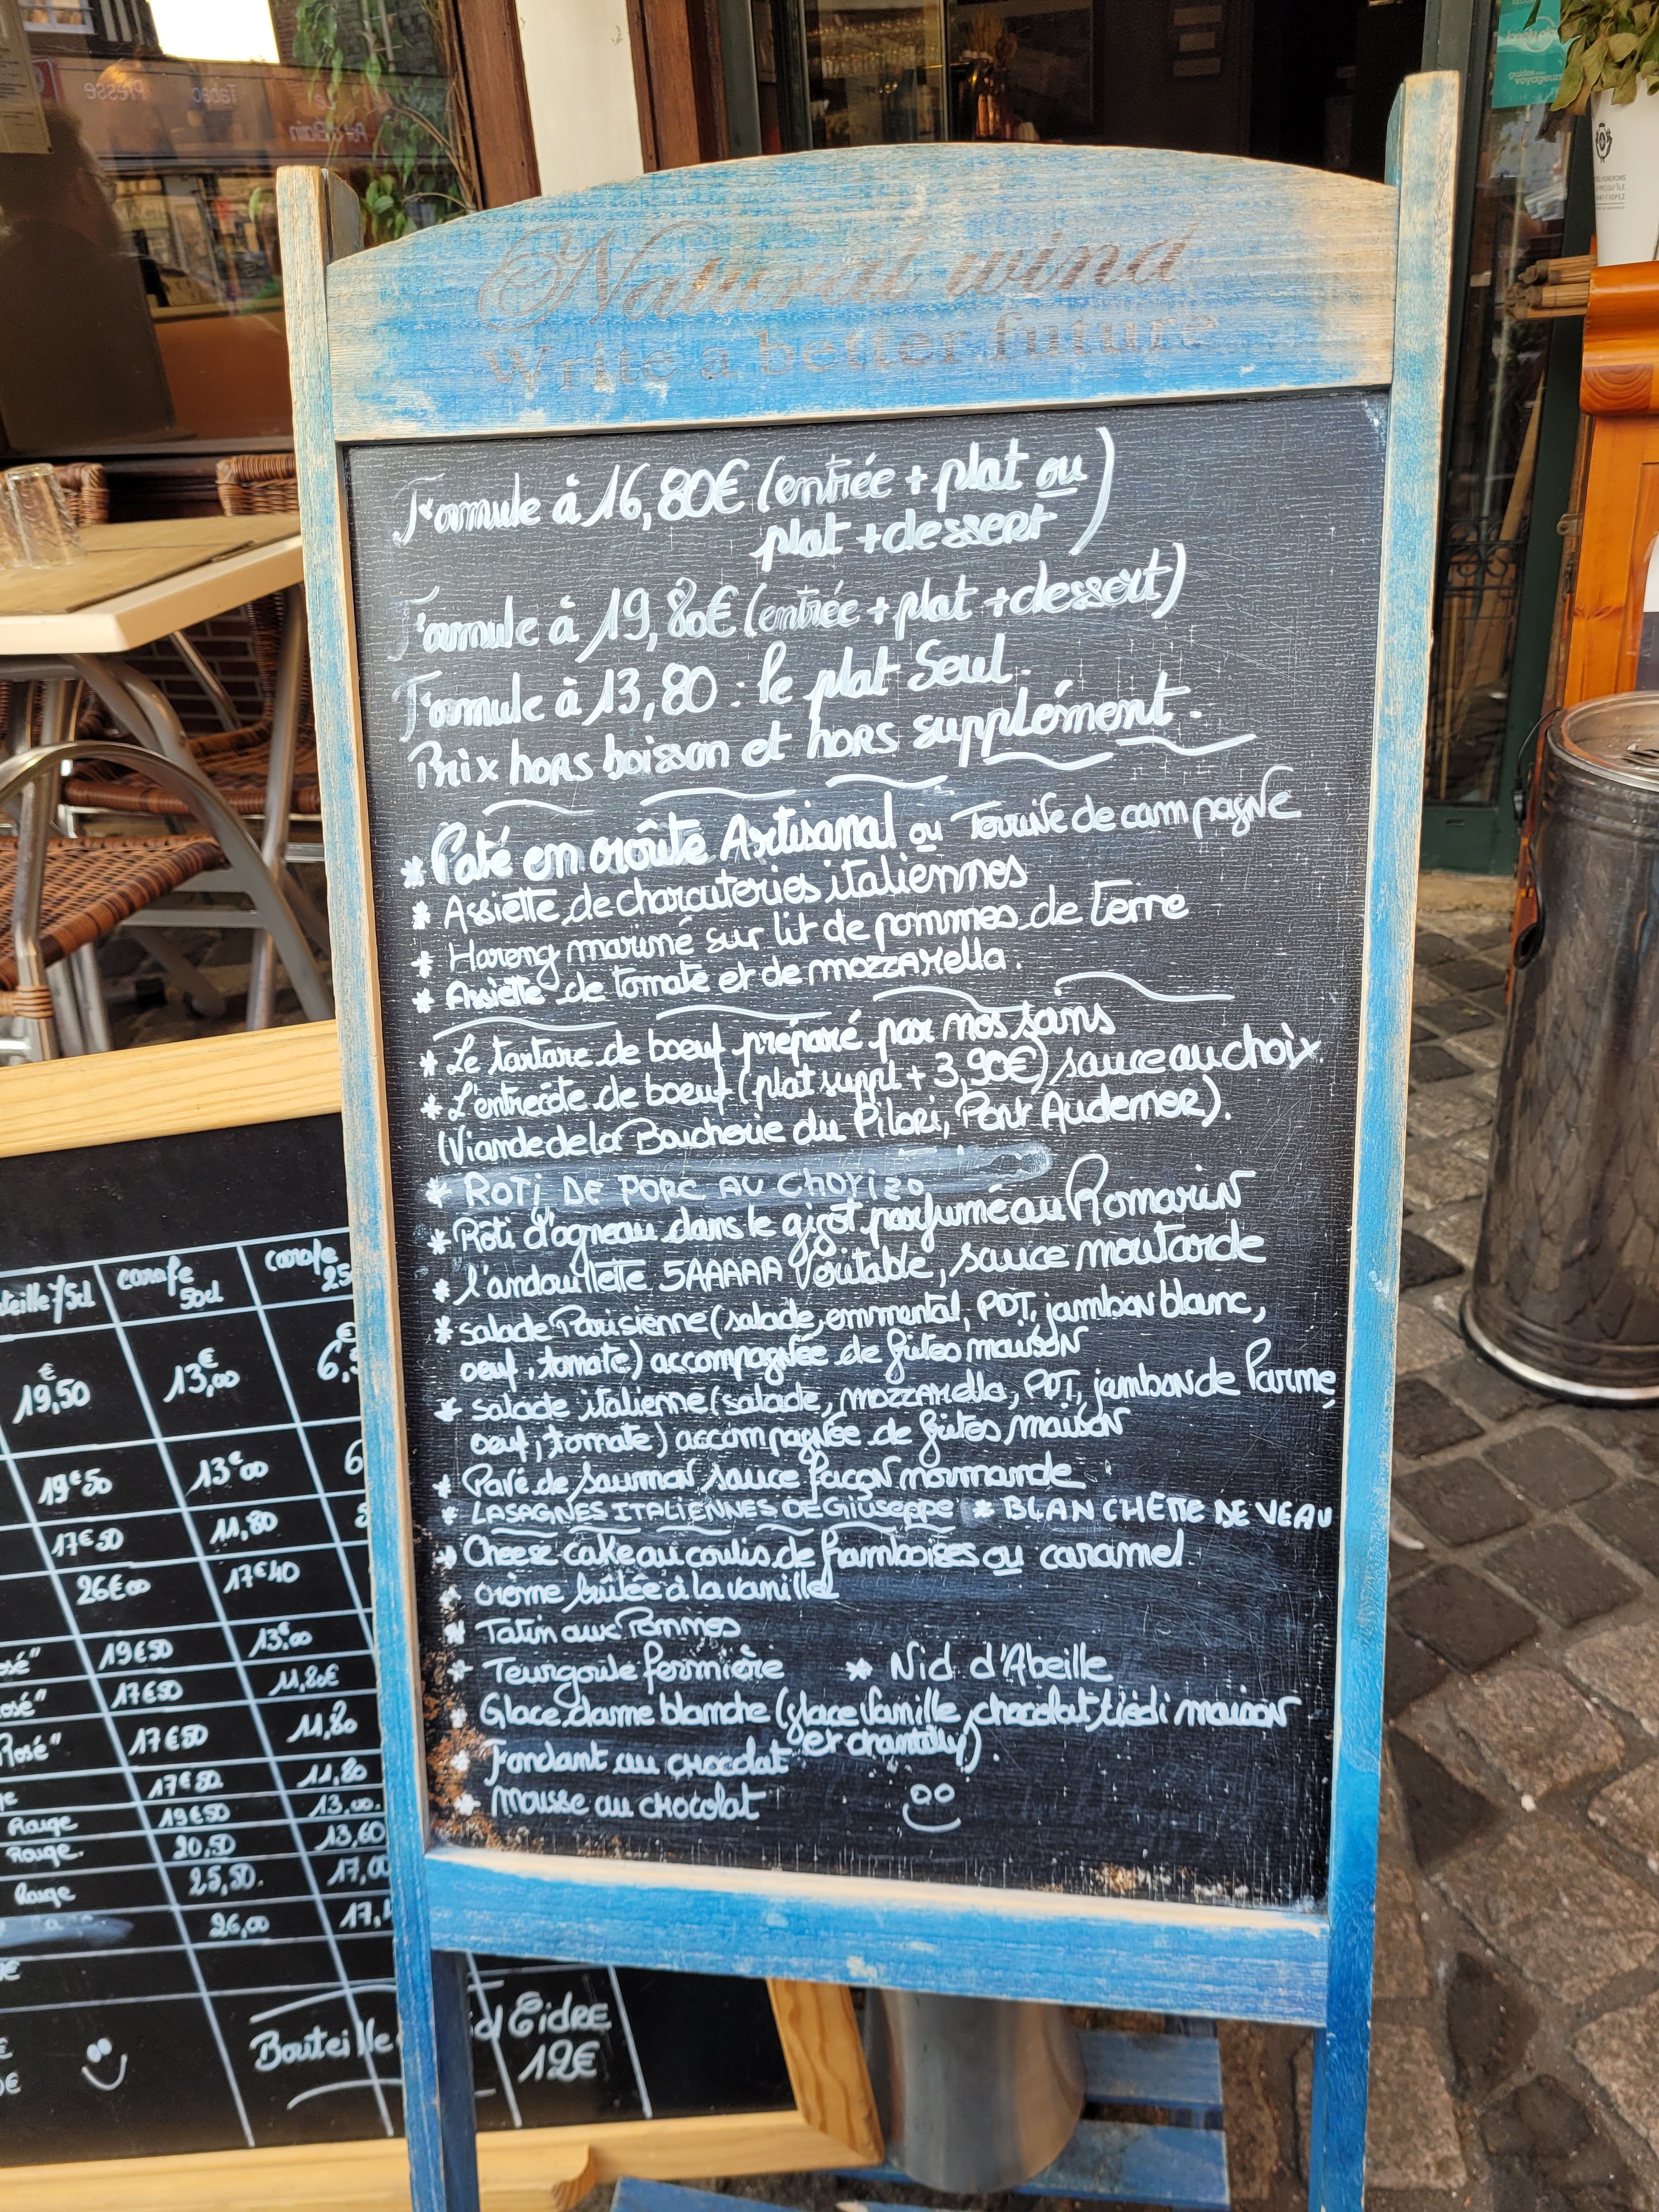 Natural wind
Write a better future
Formule à 16,80€ (entrée + plat ou
plat + dessert)
Formule à 19,80€ (entrée + plat + dessert)
Formule à 13,80 : le plat Seul.
Prix hors boisson et hors supplément.
* Paté en croûte Artisanal ou Terrine de campagne
* Assiette de charcuteries italiennes
* Hareng mariné sur lit de pommes de terre
* Assiette de tomate et de mozzarella.
* Le tartare de boeuf préparé par nos soins
* L'entrecôte de boeuf (plat suppl + 3,90€) sauce au choix
(Viande de la Boucherie du Pilori, Pont Audemer).
* ROTI DE PORC AU CHORIZO
* Rôti d'agneau dans le gigot parfumé au Romarin
* l'andouillette 5AAAAA Véritable, sauce moutarde
* salade Parisienne (salade, emmental, PDT, jambon blanc,
oeuf, tomate) accompagnée de frites maison
* salade italienne (salade, mozzarella, PDT, jambon de Parme,
oeuf, tomate) accompagnée de frites maison
* Pavé de saumon sauce façon normande
* LASAGNES ITALIENNES DE GIUSEPPE * BLANCHETTE DE VEAU
* Cheese cake au coulis de framboises ou caramel
* crème brûlée à la vanille
* Tatin aux Pommes
* Teurgoule fermière * Nid d'Abeille
* Glace dame blanche (glace Vanille, chocolat tiédi maison
et chantilly).
* Fondant au chocolat
* Mousse au chocolat
carafe 50cl
carafe 25
19,50€ 13,00€
19€50 13€00 6
17€50 11,80
26€00 17€40
19€50 13€00
17€50 11,80€
Rosé" 17€50 11,80
17€50 11,80
Rouge 19€50 13,00
Rouge 20,50 13,60
Rouge 25,50 17,00
26,00
Bouteille Cidre
12€
Presse
Tabac